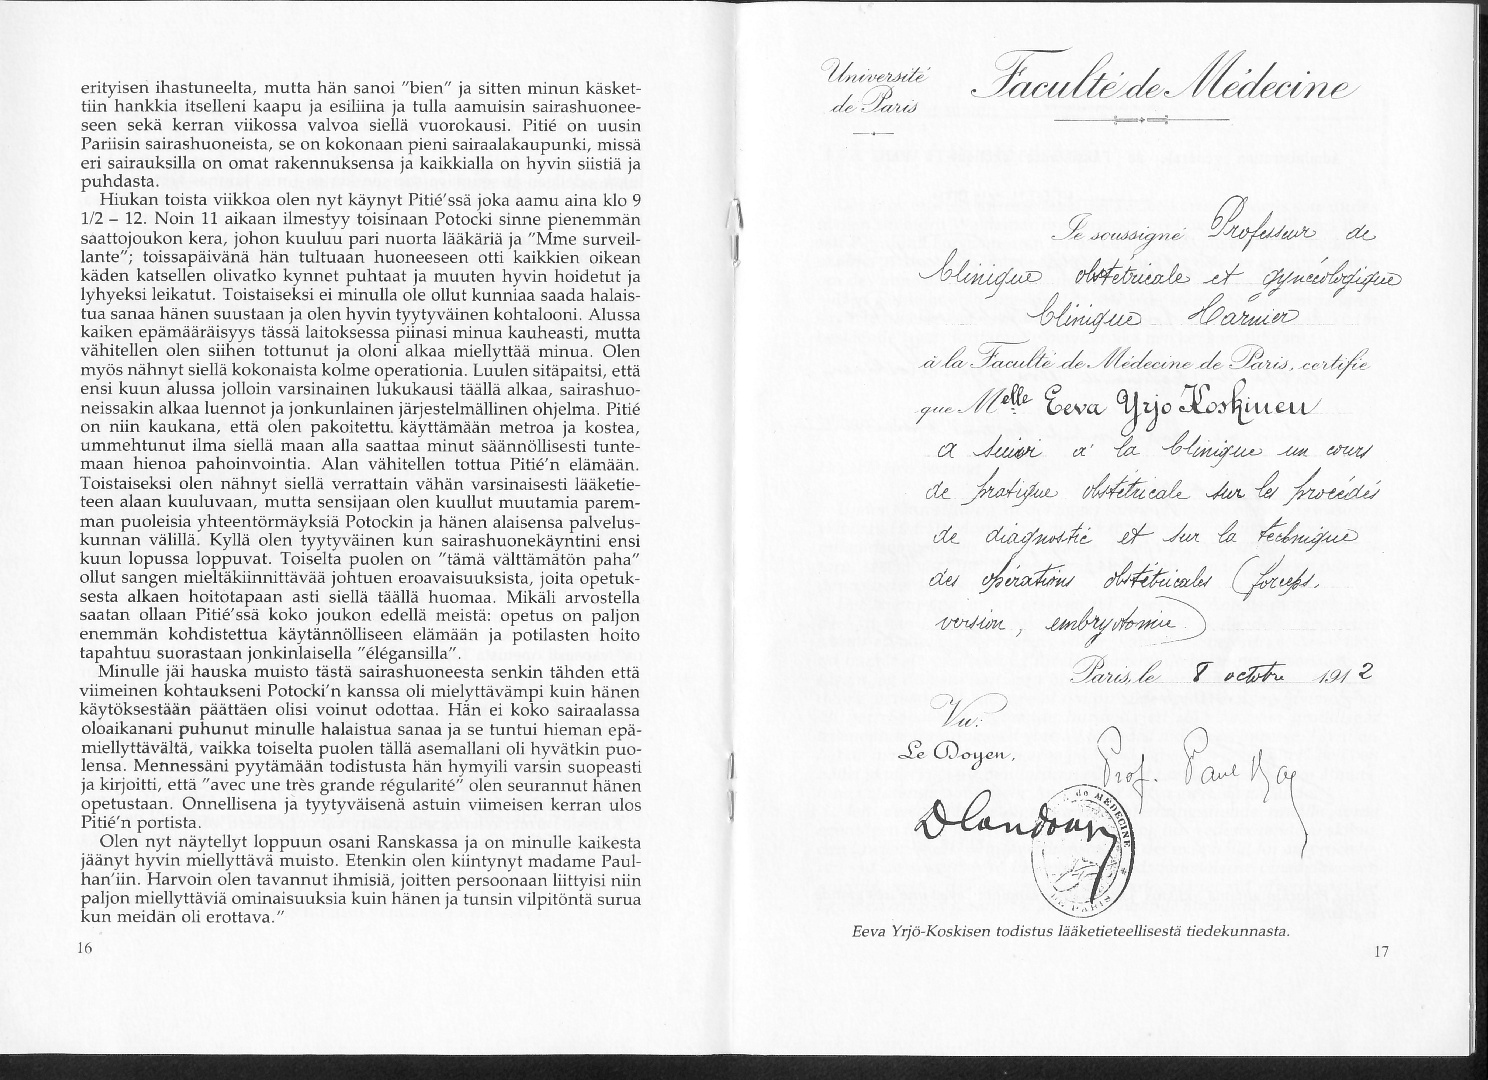 erityisen ihastuneelta, mutta hän sanoi "bien" ja sitten minun käsket-
tiin hankkia itselleni kaapu ja esiliina ja tulla aamuisin sairashuonee-
seen sekä kerran viikossa valvoa siellä vuorokausi. Pitié on uusin
Pariisin sairashuoneista, se on kokonaan pieni sairaalakaupunki, missä
eri sairauksilla on omat rakennuksensa ja kaikkialla on hyvin siistiä ja
puhdasta.
Hiukan toista viikkoa olen nyt käynyt Pitié'ssä joka aamu aina klo 9
1/2 – 12. Noin 11 aikaan ilmestyy toisinaan Potocki sinne pienemmän
saattojoukon kera, johon kuuluu pari nuorta lääkäriä ja "Mme surveil-
lante"; toissapäivänä hän tultuaan huoneeseen otti kaikkien oikean
käden katsellen olivatko kynnet puhtaat ja muuten hyvin hoidetut ja
lyhyeksi leikatut. Toistaiseksi ei minulla ole ollut kunniaa saada halais-
tua sanaa hänen suustaan ja olen hyvin tyytyväinen kohtalooni. Alussa
kaiken epämääräisyys tässä laitoksessa piinasi minua kauheasti, mutta
vähitellen olen siihen tottunut ja oloni alkaa miellyttää minua. Olen
myös nähnyt siellä kokonaista kolme operationia. Luulen sitäpaitsi, että
ensi kuun alussa jolloin varsinainen lukukausi täällä alkaa, sairashuo-
neissakin alkaa luennot ja jonkunlainen järjestelmällinen ohjelma. Pitié
on niin kaukana, että olen pakoitettu käyttämään metroa ja kostea,
ummehtunut ilma siellä maan alla saattaa minut säännöllisesti tunte-
maan hienoa pahoinvointia. Alan vähitellen tottua Pitié'n elämään.
Toistaiseksi olen nähnyt siellä verrattain vähän varsinaisesti lääketie-
teen alaan kuuluvaan, mutta sensijaan olen kuullut muutamia parem-
man puoleisia yhteentörmäyksiä Potockin ja hänen alaisensa palvelus-
kunnan välillä. Kyllä olen tyytyväinen kun sairashuonekäyntini ensi
kuun lopussa loppuvat. Toiselta puolen on "tämä välttämätön paha"
ollut sangen mieltäkiinnittävää johtuen eroavaisuuksista, joita opetuk-
sesta alkaen hoitotapaan asti siellä täällä huomaa. Mikäli arvostella
saatan ollaan Pitié'ssä koko joukon edellä meistä: opetus on paljon
enemmän kohdistettua käytännölliseen elämään ja potilasten hoito
tapahtuu suorastaan jonkinlaisella "élégansilla".
Minulle jäi hauska muisto tästä sairashuoneesta senkin tähden että
viimeinen kohtaukseni Potocki'n kanssa oli mielyttävämpi kuin hänen
käytöksestään päättäen olisi voinut odottaa. Hän ei koko sairaalassa
oloaikanani puhunut minulle halaistua sanaa ja se tuntui hieman epä-
miellyttävältä, vaikka toiselta puolen tällä asemallani oli hyvätkin puo-
lensa. Mennessäni pyytämään todistusta hän hymyili varsin suopeasti
ja kirjoitti, että "avec une très grande régularité" olen seurannut hänen
opetustaan. Onnellisena ja tyytyväisenä astuin viimeisen kerran ulos
Pitié'n portista.
Olen nyt näytellyt loppuun osani Ranskassa ja on minulle kaikesta
jäänyt hyvin miellyttävä muisto. Etenkin olen kiintynyt madame Paul-
han'iin. Harvoin olen tavannut ihmisiä, joitten persoonaan liittyisi niin
paljon miellyttäviä ominaisuuksia kuin hänen ja tunsin vilpitöntä surua
kun meidän oli erottava."
16
Université
de Paris
Faculté de Médecine
Je soussigné Professeur de
Clinique obstétricale et gynécologique
Clinique Tarnier
à la Faculté de Médecine de Paris, certifie
que Melle Eeva Yrjo Koskinen
a suivi à la Clinique un cours
de pratique obstétricale sur les procédés
de diagnostic et sur la technique
des opérations obstétricales (forceps,
version, embryotomie)
Paris, le 8 octobre 1912
Vu:
Le Doyen,
Prof. Paul Bar
DLandouzy
de MEDECINE
DE PARIS
Eeva Yrjö-Koskisen todistus lääketieteellisestä tiedekunnasta.
17